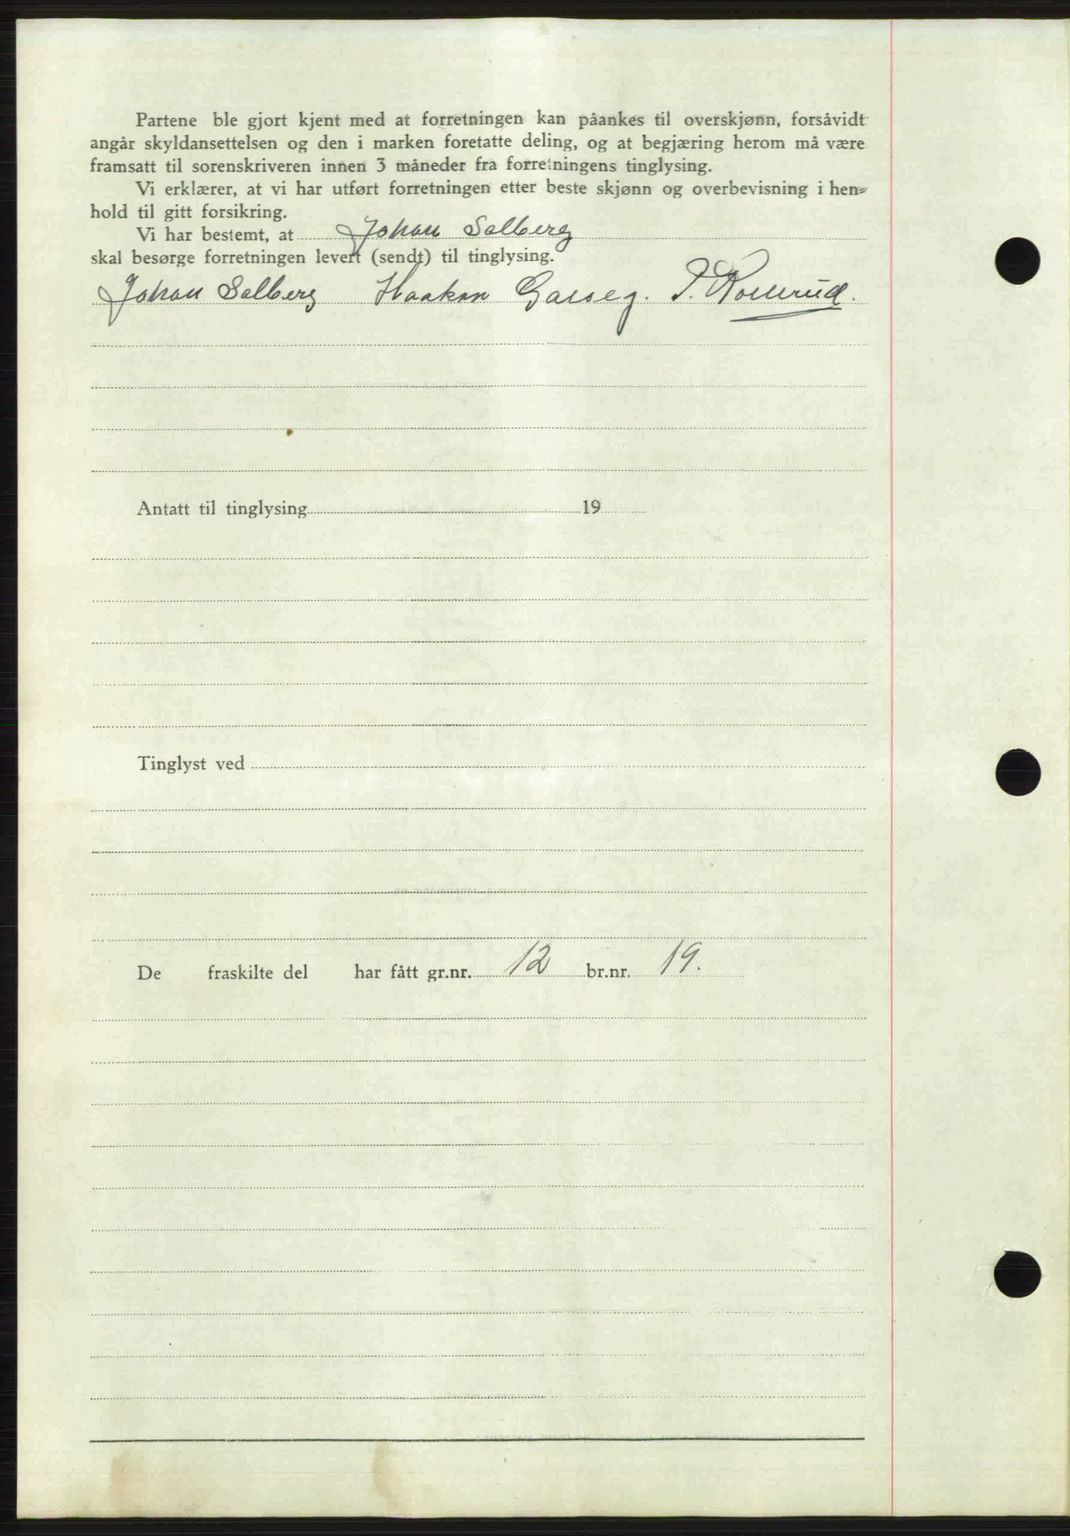 Partene ble gjort kjent med at forretningen kan påankes til overskjønn, forsåvidt
angår skyldansettelsen og den i marken foretatte deling, og at begjæring herom må være
framsatt til sorenskriveren innen 3 måneder fra forretningens tinglysing.
Vi erklærer, at vi har utført forretningen etter beste skjønn og overbevisning i hen-
hold til gitt forsikring.
Vi har bestemt, at Johan Solberg
skal besørge forretningen levert (sendt) til tinglysing.
Johan Solberg Haakon
Antatt til tinglysing 19
Tinglyst ved
De fraskilte del har fått gr.nr. 12 br.nr. 19.